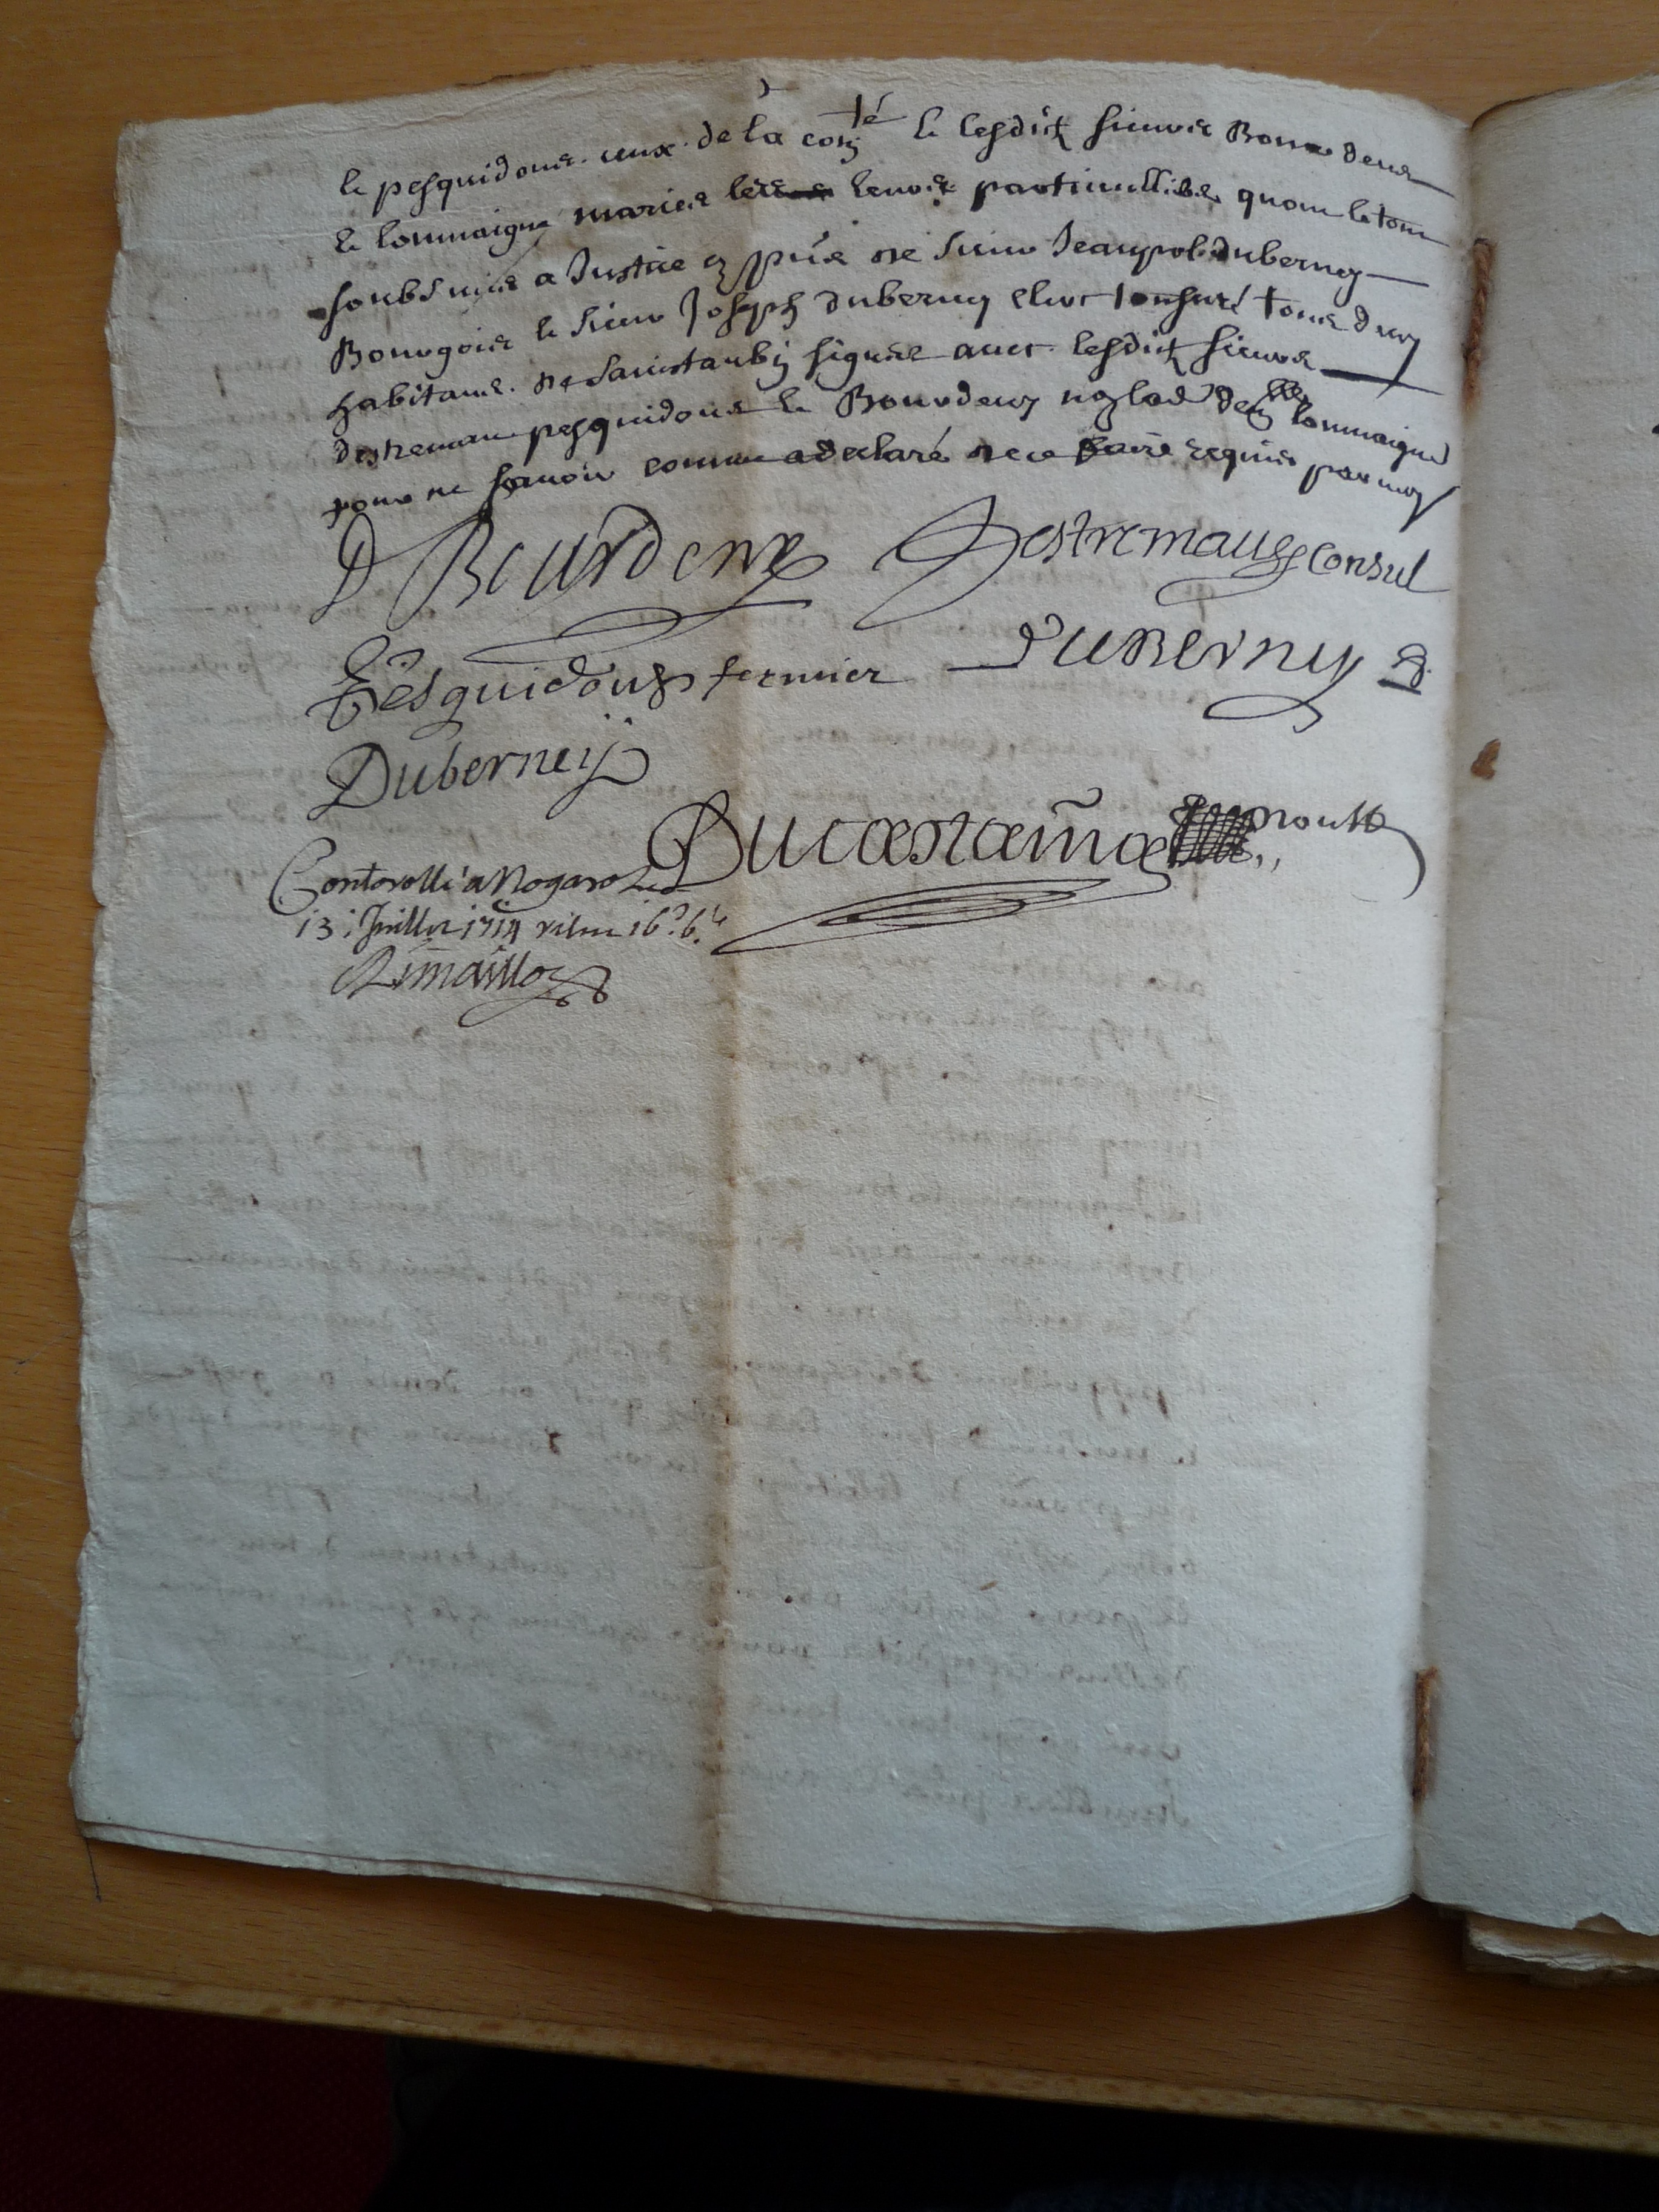 & pesquidoux ceux de la com̃té & lesdicts sieurs Bourdeus
& lommaigne mariés leurs particulliers quont le tout
soubsmis a Justice en p̃nce de sieur Jeanpol duberney
Bourgois & sieur Joseph duberney clerc tonsuré tous deux
habitans de Sainctaubin signés avec lesdicts sieurs
destremau pesquidoux & Bourdeux non lad. delle lommaigne
pour ne sçavoir comme a declaré de ce faire requis par moy
D Bourdeux Destremau Consul
Pesquidoux fermier duBerny
Duberneÿ
Ducastaiña
Controllé a Nogaro Le
13 Juillet 1714 16s 6d
Rimaillo